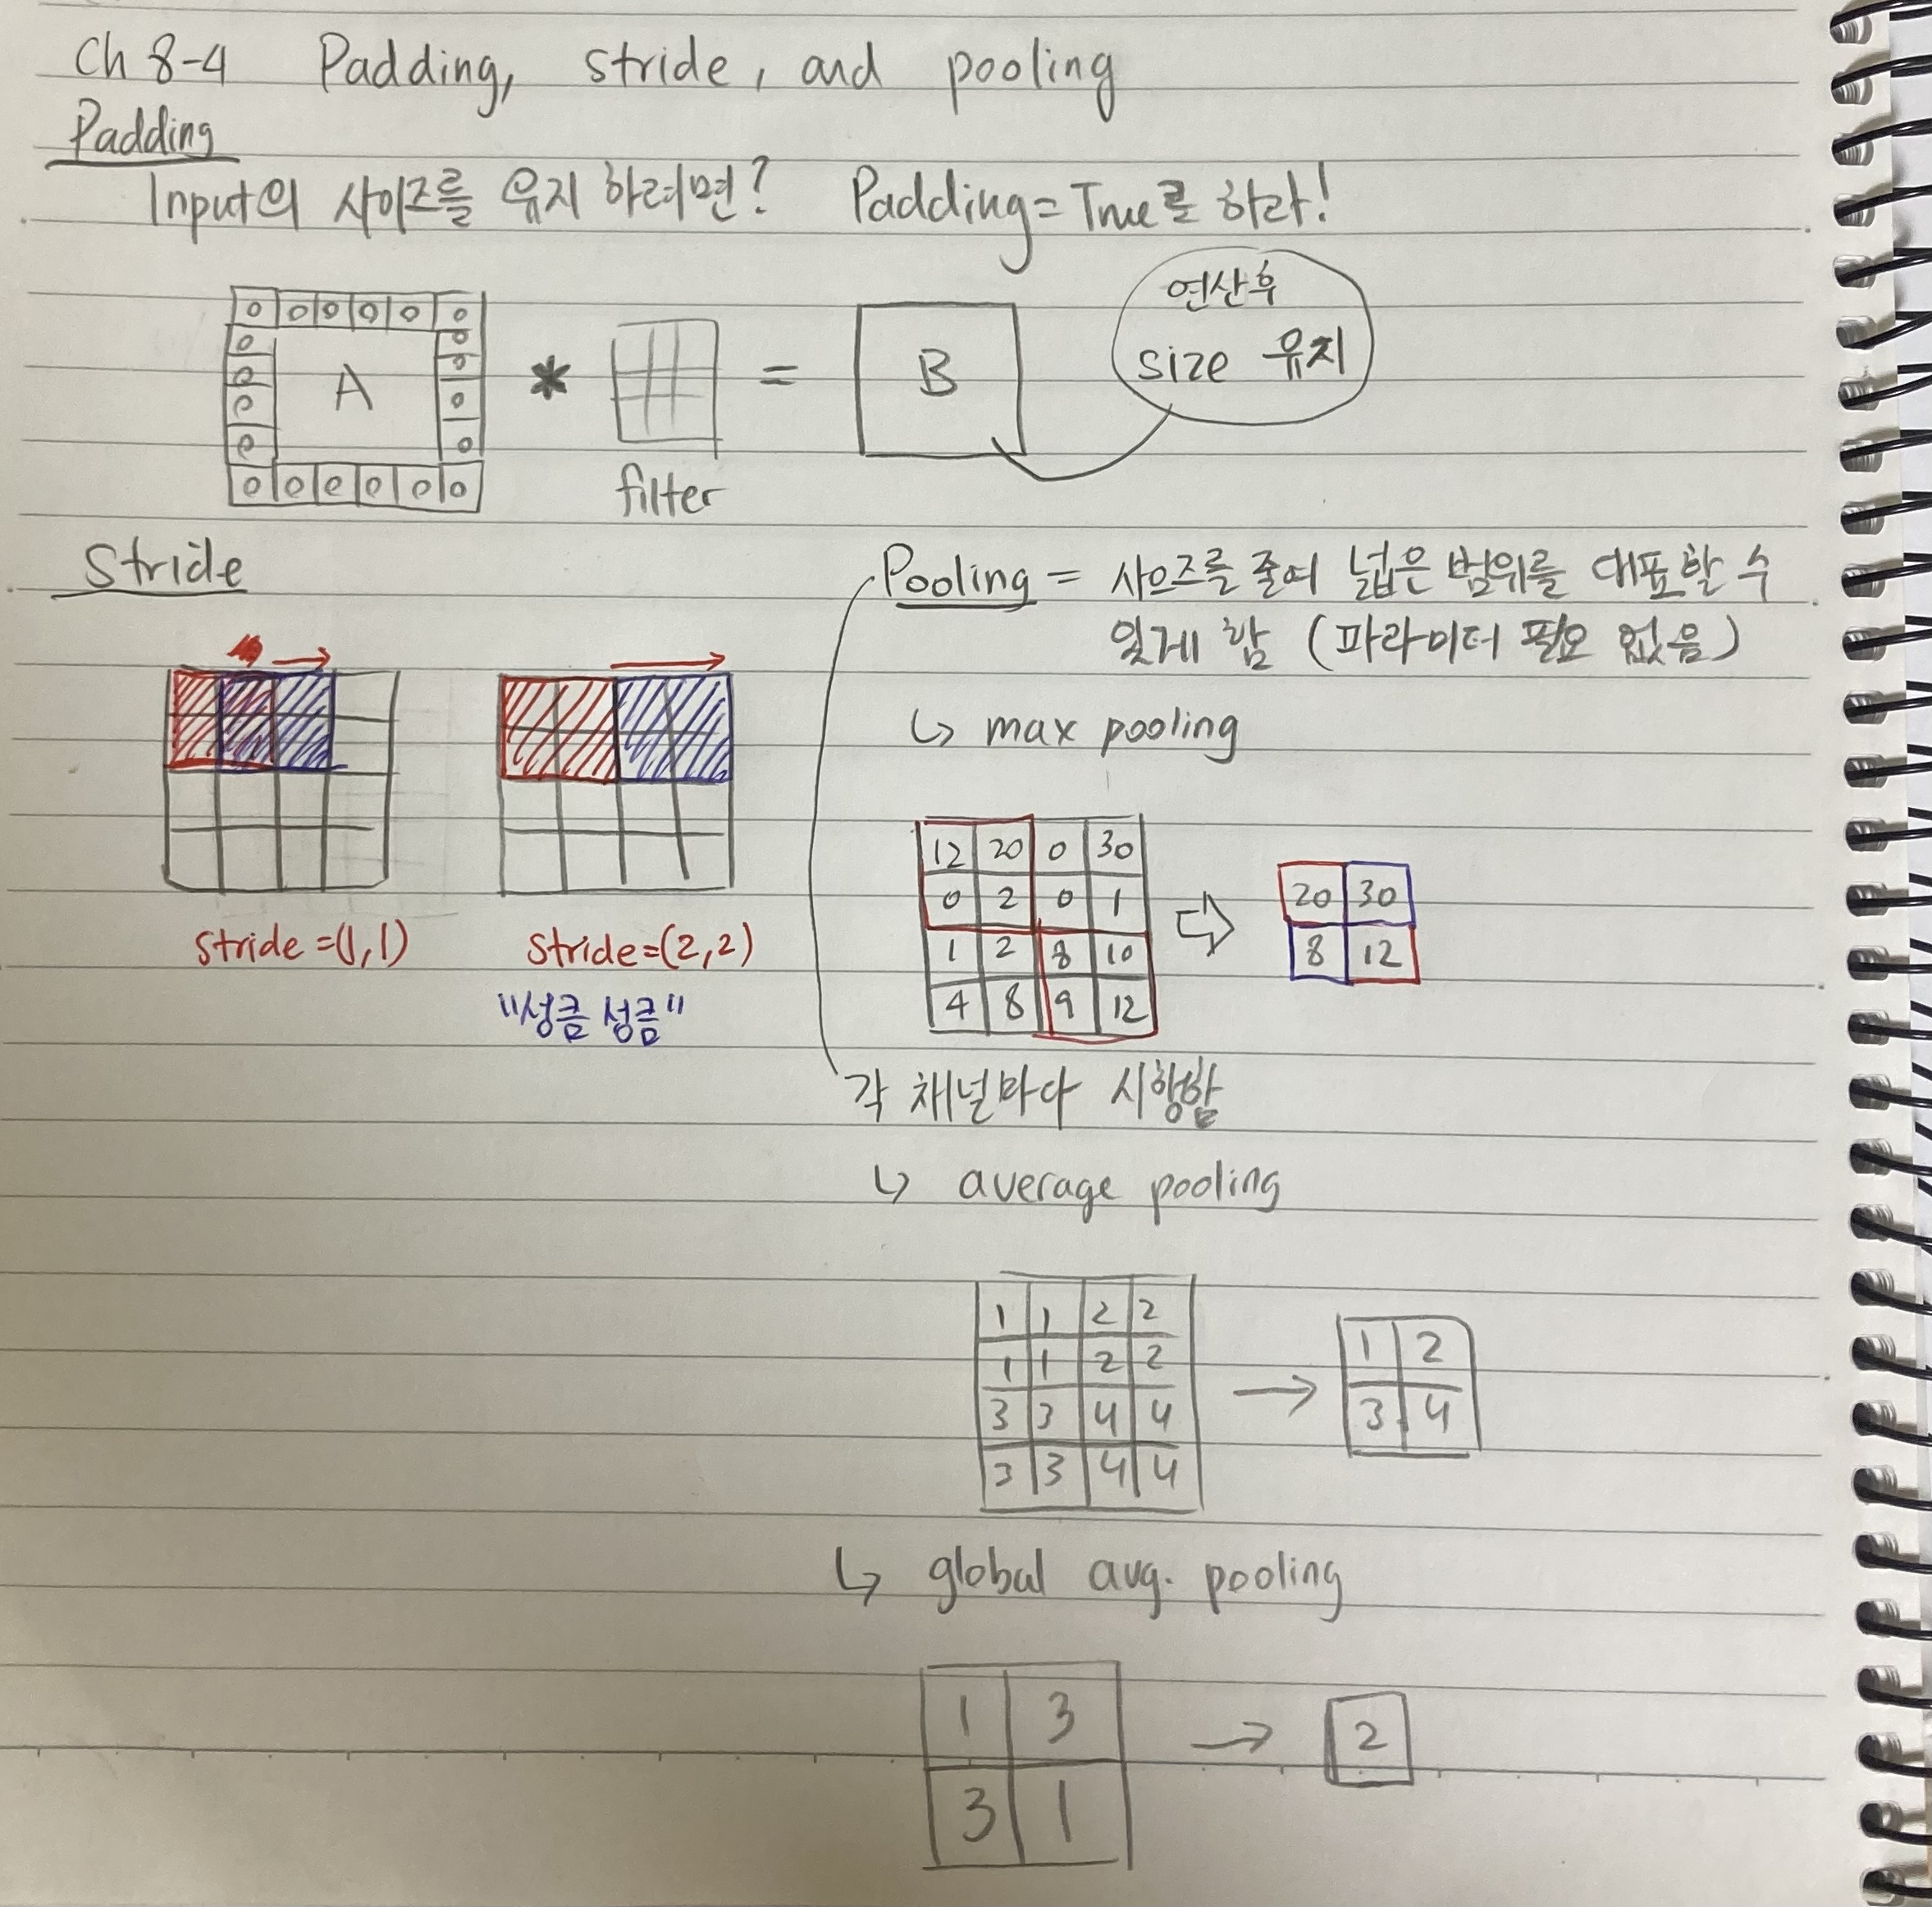 Ch 8-4 Padding, stride, and pooling
Padding
Input의 사이즈를 유지 하려면? Padding=True를 하라!
0 0 0 0 0 0
0 0
0 0
0 0
0 0
0 0 0 0 0 0
A * = B
filter
연산후
size 유지
Stride
stride=(1,1) stride=(2,2)
"성큼 성큼"
Pooling = 사이즈를 줄여 넓은 범위를 대표할 수
있게 함 (파라미터 필요 없음)
↳ max pooling
12 20 0 30
0 2 0 1
1 2 8 10
4 8 9 12
⇨
20 30
8 12
각 채널마다 시행함
↳ average pooling
1 1 2 2
1 1 2 2
3 3 4 4
3 3 4 4
→
1 2
3 4
↳ global avg. pooling
1 3
3 1
→
2